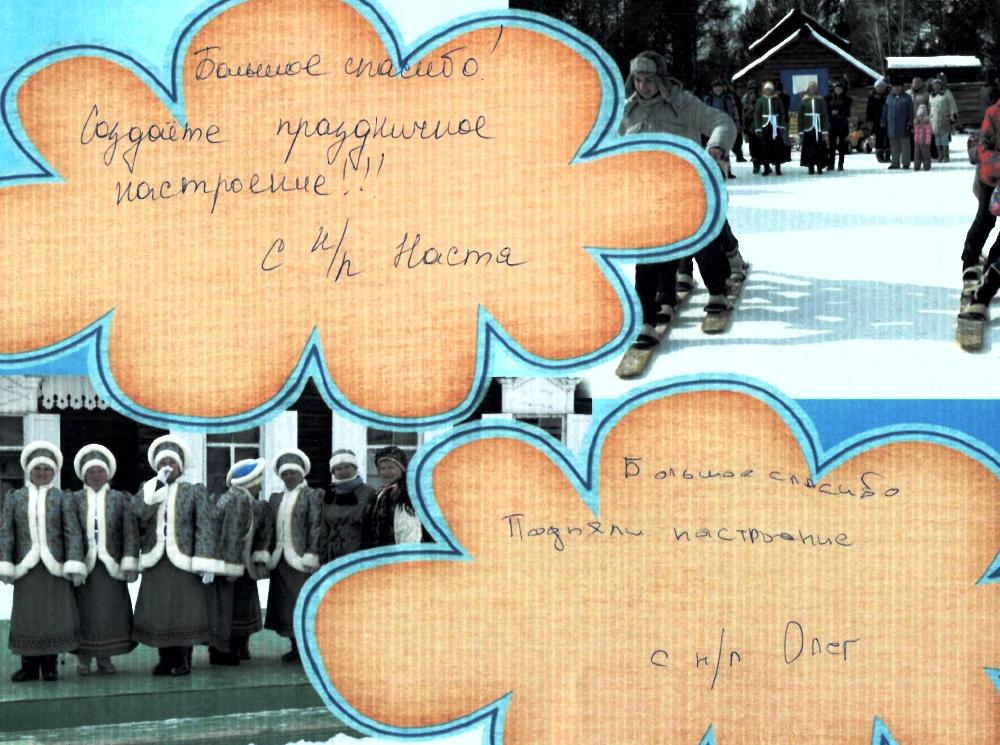 Большое спасибо!
Создаёте праздничное
настроение!!!
С н/п Настя
Большое спасибо
Подняли настроение
с н/п Олег